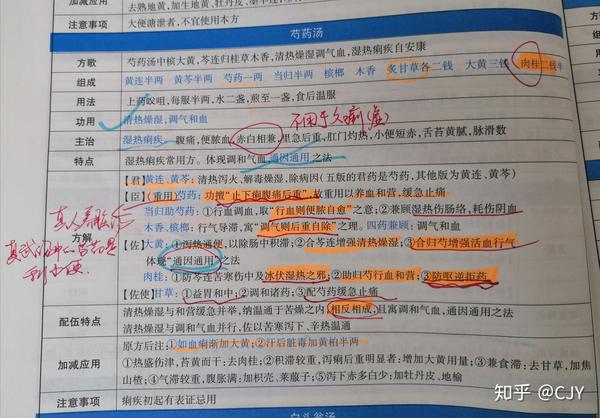 加减应用
去熟地黄,加生地黄、牡丹皮、墨旱莲
注意事项 大便溏泄者,不宜使用本方
芍药汤
方歌 芍药汤中槟大黄,芩连归桂草木香,清热燥湿调气血,湿热痢疾自安康
组成 黄连半两 黄芩半两 芍药一两 当归半两 槟榔 木香 炙甘草各二钱 大黄三钱 肉桂二钱半
用法 上药㕮咀,每服半两,水二盏,煎至一盏,食后温服
功用 清热燥湿,调气和血
不用于久痢(虚)
主治 湿热痢疾。腹痛,便脓血,赤白相兼,里急后重,肛门灼热,小便短赤,舌苔黄腻,脉滑数
特点 湿热痢疾常用方。体现调和气血,通因通用之法
方解
【君】黄连、黄芩:清热泻火、解毒燥湿,除病因(五版的君药是芍药,其他版为黄连、黄芩)
【臣】(重用)芍药:功擅"止下痢腹痛后重",故重用以养血和营,缓急止痛
当归助芍药:①行血调血,取"行血则便脓自愈"之意;②兼顾湿热伤肠络,耗伤阴血
木香、槟榔:行气导滞,寓"调气则后重自除"之理。四药兼顾:调气和血
【佐】大黄:①泻热通便,以除肠中积滞;②合芩连增强清热燥湿;③合归芍增强活血行气
体现"通因通用"之法
肉桂:①防芩连苦寒伤中及冰伏湿热之邪;②助归芍行血和营;③防呕逆拒药
【佐使】甘草:①益胃和中;②调和诸药;③配芍药缓急止痛
配伍特点 清热燥湿与和营缓急并举,纳温通于苦燥之内,相反相成,且寓调和气血、通因通用之法
清热燥湿与调和气血并行,佐以苦寒泻下、辛热温通
加减应用
原方后注:①如血痢渐加大黄;②汗后脏毒加黄柏半两
①热盛伤津,苔黄而干:去肉桂;②积滞较重,泻痢后重明显者:增加大黄用量;③兼食滞:去甘草,加焦
山楂;④气滞较重,腹胀满:加枳壳、莱菔子;⑤泻下赤多白少:加牡丹皮、地榆
注意事项 痢疾初起有表证忌用
白头翁汤
知乎 @CJY